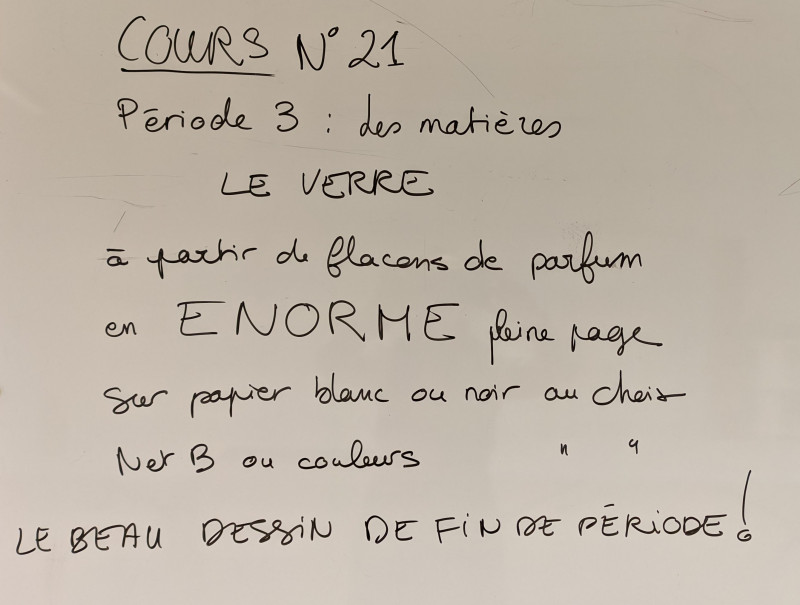 COURS N° 21
Période 3 : des matières
LE VERRE
à partir de flacons de parfum
en ENORME pleine page
sur papier blanc ou noir au choix
N et B ou couleurs " "
LE BEAU DESSIN DE FIN DE PÉRIODE !